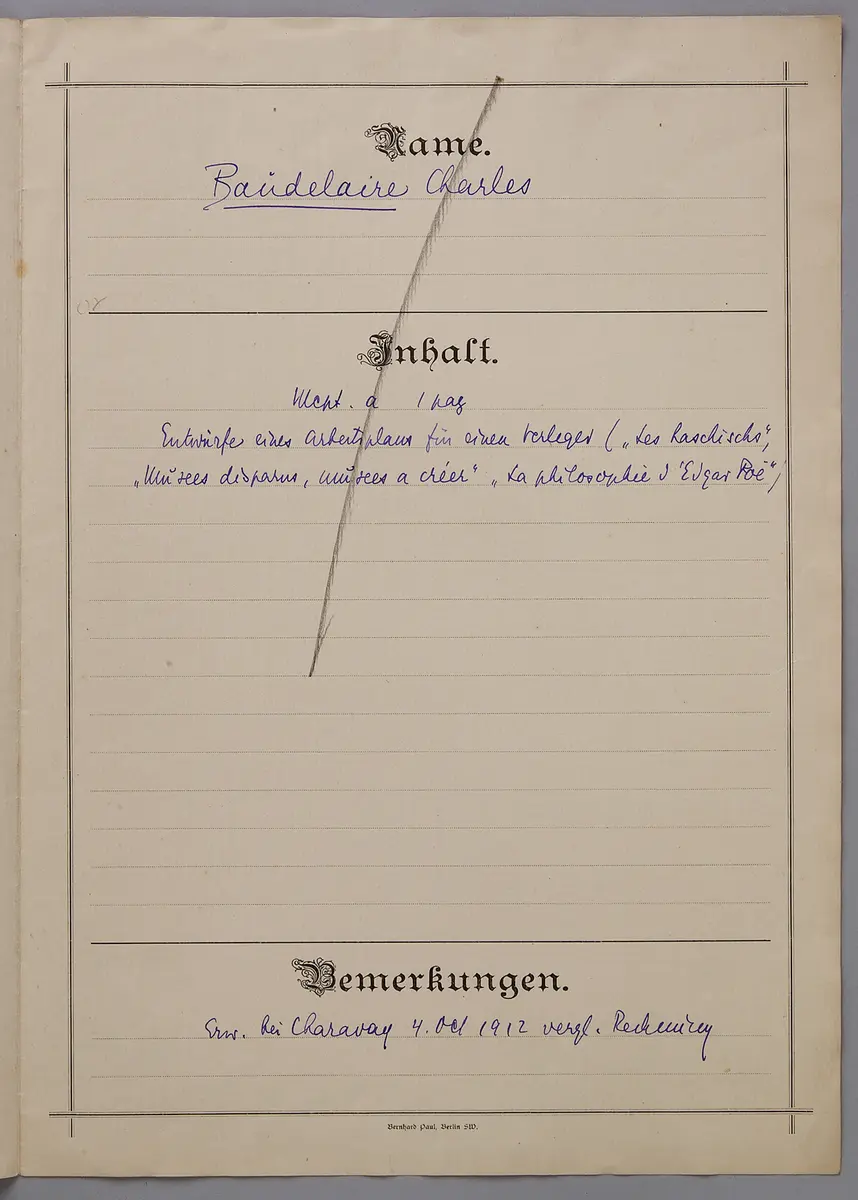 Name.
Baudelaire Charles
Inhalt.
Mcpt. a 1 pag
Entwürfe eines Arbeitsplans für einen Verleger („Les haschischs“,
„Musees disparus, musees a créer“ „La philosophie d'Edgar Poë“)
Bemerkungen.
Erw. bei Charavay 4. Oct 1912 vergl. Rechnung
Bernhard Paul, Berlin SW.